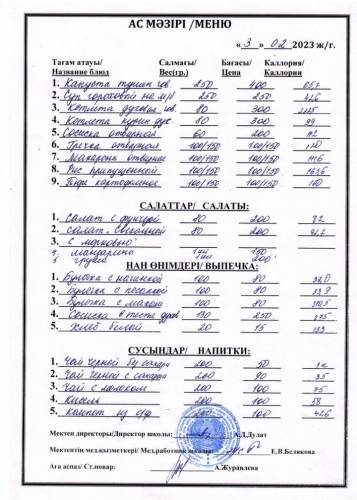 АС МӘЗІРІ /МЕНЮ
« 3 » 02 2023 ж/г.
Тағам атауы/ Салмағы/ Бағасы/ Каллория/
Название блюд Вес(гр.) Цена Каллории
1. Капуста тушен гов. 250 400
2. Суп гороховый на м/к 250 250
3. Котлета духовая гов. 80 300
4. Котлета курин дух. 80 300 99
5. Сосиска отварной 60 200
6. Гречка отварная 100/150 100/150
7. Макароны отварные 100/150 100/150
8. Рис припущенный 100/150 100/150
9. Пюре картофельное 100/150 100/150
САЛАТТАР/ САЛАТЫ:
1. Салат с 80 200
2. салат свекольной 80 200
3. с морковью
4. мандарины 1 шт 150
5. груша 1шт 200
НАН ӨНІМДЕРІ/ ВЫПЕЧКА:
1. Булочка с начинкой 100 80
2. Булочка с 100 80
3. Булочка с маком 100 80
4. Сосиска в тесте дух 130 250
5. хлеб белой 20 15
СУСЫНДАР/ НАПИТКИ:
1. Чай черной бу сахара 200 50
2. Чай черной с сахаром 200 90
3. Чай с молоком 200 100 75
4. Кисель 200 100 58
5. компот из с/ф 200 100
Мектеп директоры/Директор школы: А.Д.Дулат
Мектептін мед.қызметкері/ Мед.работник школы: Е.В.Белякова
Аға аспаз/ Ст.повар: А.Журавлева